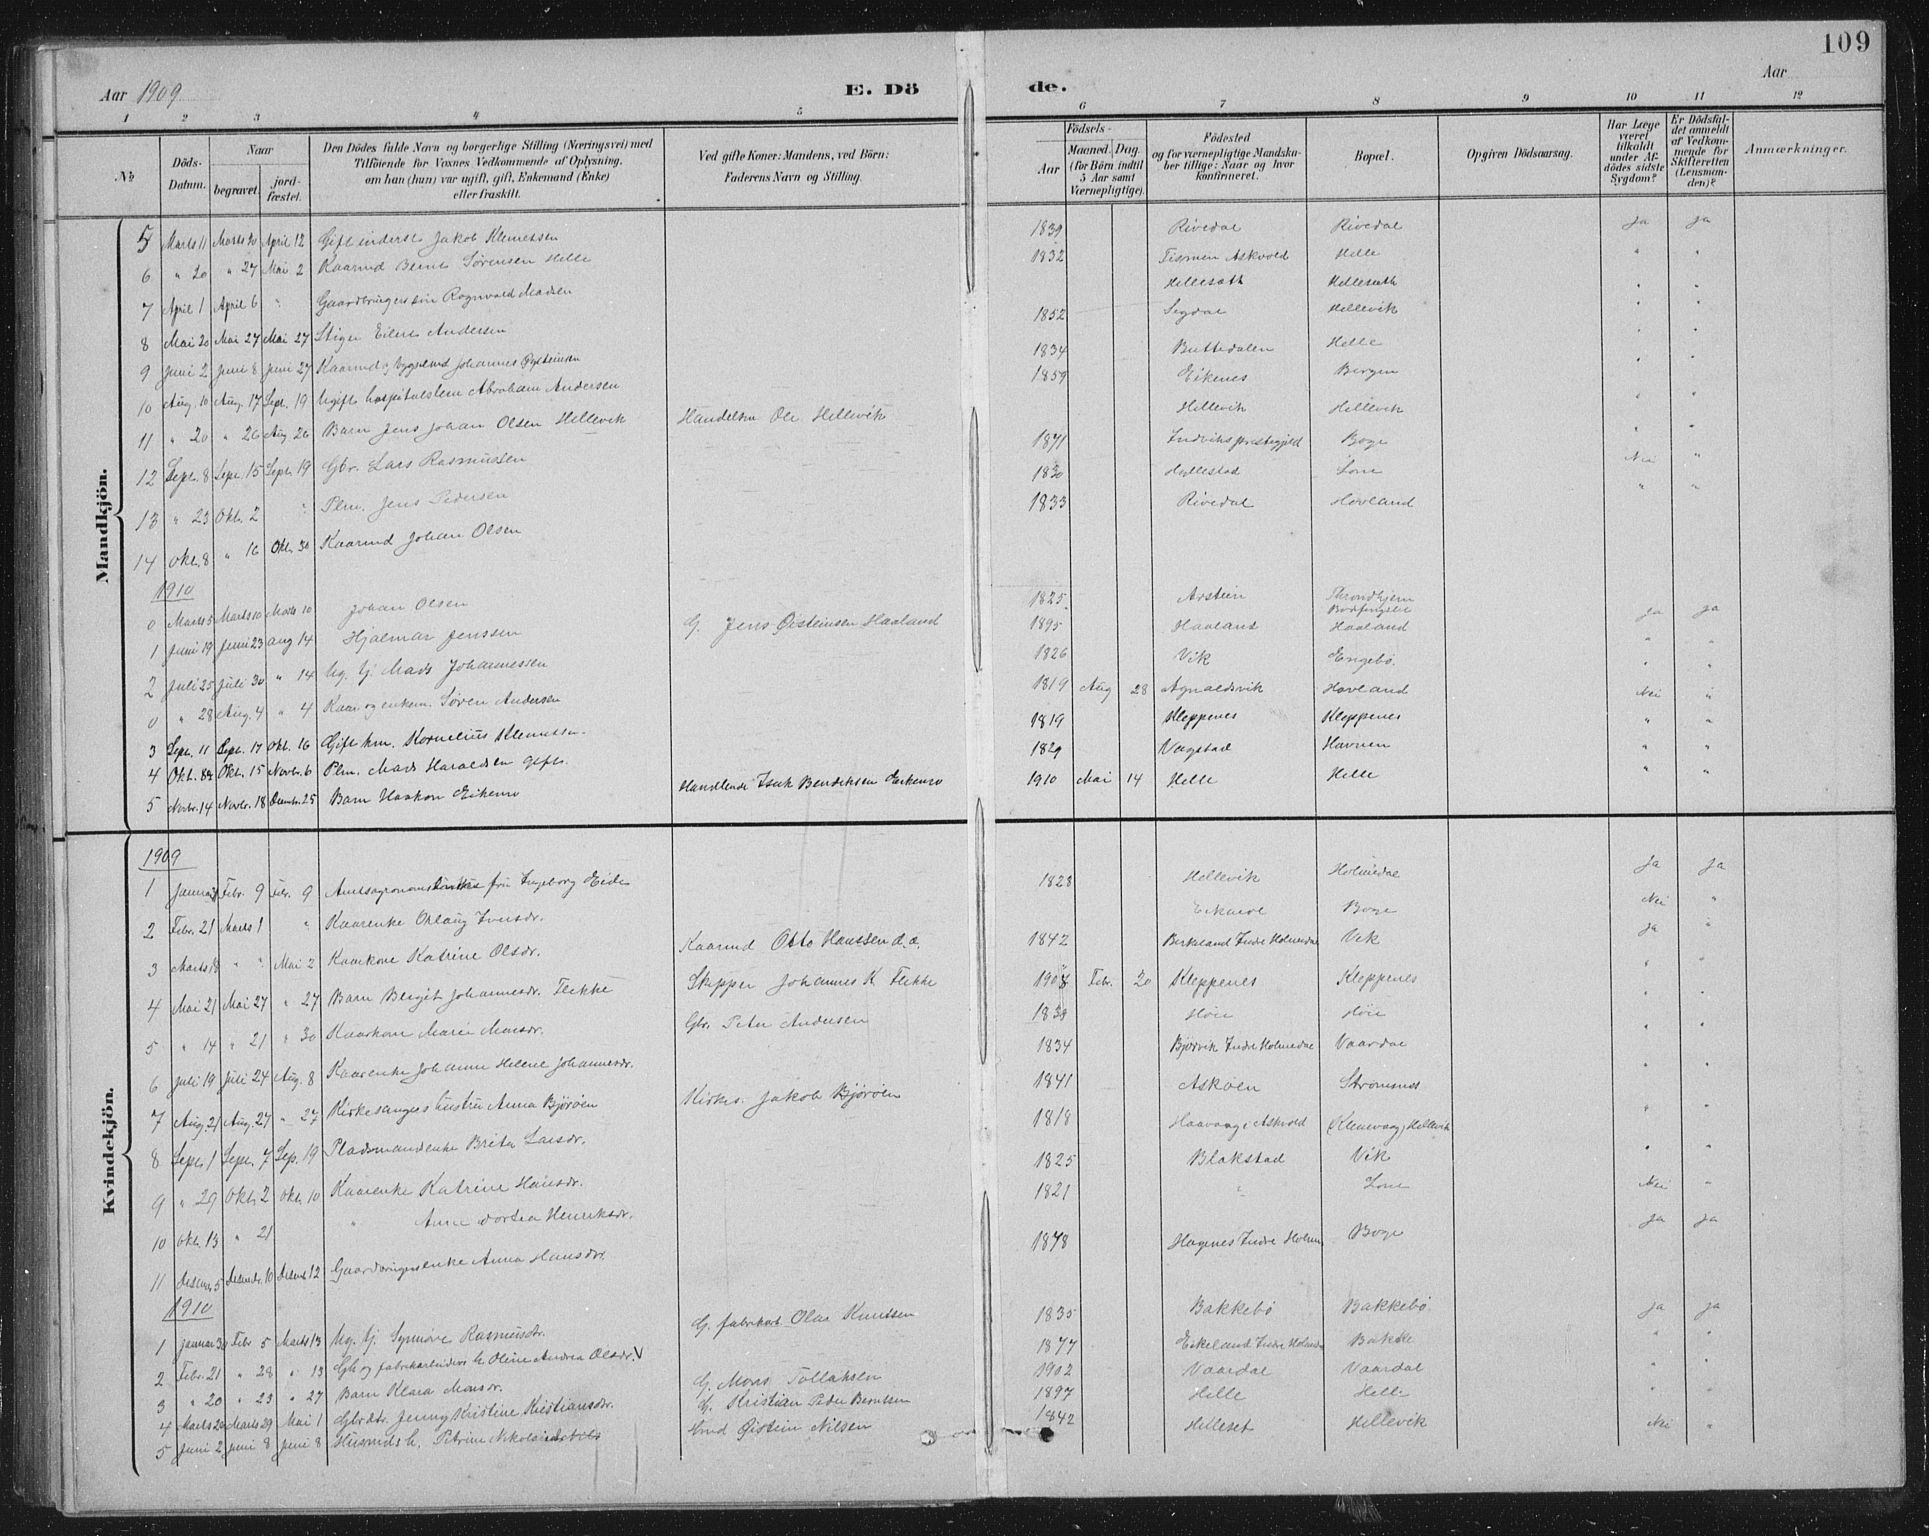 109
Aar 1909
E. Dö
de.
Aar
1 2 3 4 5 6 7 8 9 10 11 12
№
Döds-Datum.
Naar
begravet.
jord-fæstet.
Den Dödes fulde Navn og borgerlige Stilling (Næringsvei) med
Tilföiende for Voxnes Vedkommende af Oplysning,
om han (hun) var ugift, gift, Enkemand (Enke)
eller fraskilt.
Ved gifte Koner: Mandens, ved Börn:
Faderens Navn og Stilling.
Födsels-
Aar
Maaned. Dag.
(for Börn indtil
5 Aar samt
Værnepligtige).
Födested
og for værnepligtige Mandska-
ber tillige: Naar og hvor
konfirmeret.
Bopæl.
Opgiven Dödsaarsag.
Har Læge
været
tilkaldt
under Af-
dödes sidste
Sygdom?
Er Dödsfal-
det anmeldt
af Vedkom-
mende for
Skifteretten
(Lensman-
den)?
Anmærkninger.
Mandkjön.
5 Marts 11 Marts 20 April 12 Gift inderst Jakob Klemetsen 1839 Rivedal Rivedal ja ja
6 " 20 " 27 Mai 2 Kaarmd Bernt Sørensen Helle 1832 Askvold Helle " "
7 April 1 April 6 " Gaardbrugers søn Rognvald Madsen Hellesæth Hellesæth " "
8 Mai 20 Mai 27 Mai 27 Stiger Eilert Andersen 1852 Sogdal Hellevik " "
9 Juni 2 Juni 8 Juni 27 Kaarmd og Johannes Øysteinsen 1834 Buttedalen Helle " "
10 Aug. 10 Aug. 17 Sept. 19 Ugift hospitalslem Abraham Andersen 1859 Eikenes Bergen " "
11 " 20 " 26 Aug. 26 Barn Jens Johan Olsen Hellevik Handelsm Ole Hellevik Hellevik Hellevik " "
12 Sept. 8 Sept. 15 Sept. 19 Gbr. Lars Rasmussen 1871 Indviks prestegjeld Boge " "
13 " 23 Okt. 2 " Plm. Jens Pedersen 1830 Hyllestad Lone Nei "
14 Okt. 8 " 16 Okt. 30 Kaarmd Johan Olsen 1833 Rivedal Hovland " "
1910
0 Marts 5 Marts 10 Marts 10 Johan Olsen 1825 Arstein Throndhjem
1 Juni 19 Juni 23 Aug 14 Hjalmar Jenssen G. Jens Øisteinsen Haaland 1895 Haaland Haaland ja ja
2 Juli 25 Juli 30 " 14 Ug. Gj. Mads Johannessen 1826 Vik Engebø " "
0 " 28 Aug. 4 " 4 Kaar og enkem. Søren Andersen 1819 Aug 28 Hovland " "
3 Sept. 11 Sept. 17 Okt. 16 Gift km. Kornelius Klemetsen 1819 Kleppenes Kleppenes Nei "
4 Okt. 8 Okt. 15 Novbr. 6 Plm. Mads Haraldsen gift. 1829 Vagstad Havnen " "
5 Novbr. 14 Novbr. 18 Decembr. 25 Barn Haakon Eikemo Handlende Isak Bendiksen Eikemo 1910 Mai 14 Helle Helle " "
Kvindekjön.
1909
1 Januar Febr. 9 Febr. 9 Amtsagronom fru Ingeborg Eide 1828 Hellevik Holmedal ja ja
2 Febr. 21 Marts 1 " Kaarenke Oklaug Iversdr. Boge Nei "
3 Marts 18 " " Mai 2 Kaarkone Katrine Olsdr. Kaarmd Otto Hanssen 1842 Birkeland Indre Holmedal Vik ja "
4 Mai 21 Mai 27 " 27 Barn Bergit Johannesdr. Flekke Skipper Johannes K. Flekke 1908 Febr. 20 Kleppenes Kleppenes " "
5 " 14 " 21 " 30 Kaarkone Marie Monsdr. Gbr. Peter Andersen 1839 Høie Høie " "
6 Juli 19 Juli 24 Aug. 8 Kaarenke Johanne Helene Johannesdr. 1834 Bjørvik Indre Holmedal Vaardal " "
7 Aug. 21 Aug. 27 " 27 Kirkesangers hustru Anna Bjørøen Kirkes. Jakob Bjørøen 1841 Askøen Strømsnes " "
8 Sept. 1 Sept. 7 Sep. 19 Pladsmandenke Brita Larsdr. 1818 Haavaag i Askvold Hellevik " "
9 " 29 Okt. 2 Okt. 10 Kaarenke Katrine Hansdr. 1825 Blakstad Vik " "
10 Okt. 13 " 21 " Anne Dortea Henriksdr. 1821 " Lone Nei "
11 Desembr. 5 Desembr. 10 Desembr. 12 Gaardbrugerenke Anna Hansdr. 1878 Hagenes Indre Holmed Boge ja ja
1910
1 Januar 30 Febr 5 Marts 13 Ug. Gj. Synnøve Rasmusdr. G. fabrikarb Olai Knudsen 1835 Bakkebø Bakkebø ja ja
2 Febr. 21 " 28 " 13 Gb. og fabrikarbeiders h. Oline Andrea Olsdr. V 1877 Eikeland Indre Holmeda Bakke " "
3 " 20 " 23 " 27 Barn Klara Monsdr. G. Mons Tollaksen 1902 Vaardal Vaardal " "
4 Marts 20 Marts 29 Mai 1 Gbrdtr. Jenny Kristine Kristiansdr. G. Kristian Peder Berntsen 1897 Helle Helle " "
5 Juni 2 Juni 8 Juni 8 Husmds h. Petrine Hmd Øistein Nilsen 1842 Helleset Hellevik Nei "